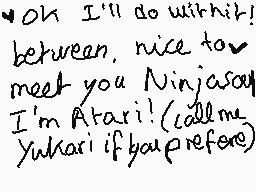 ♥ OK I'll do wirhit!
between, nice to♥
meet you Ninjasoul
I'm Atari! (call me
Yukari if you prefere)